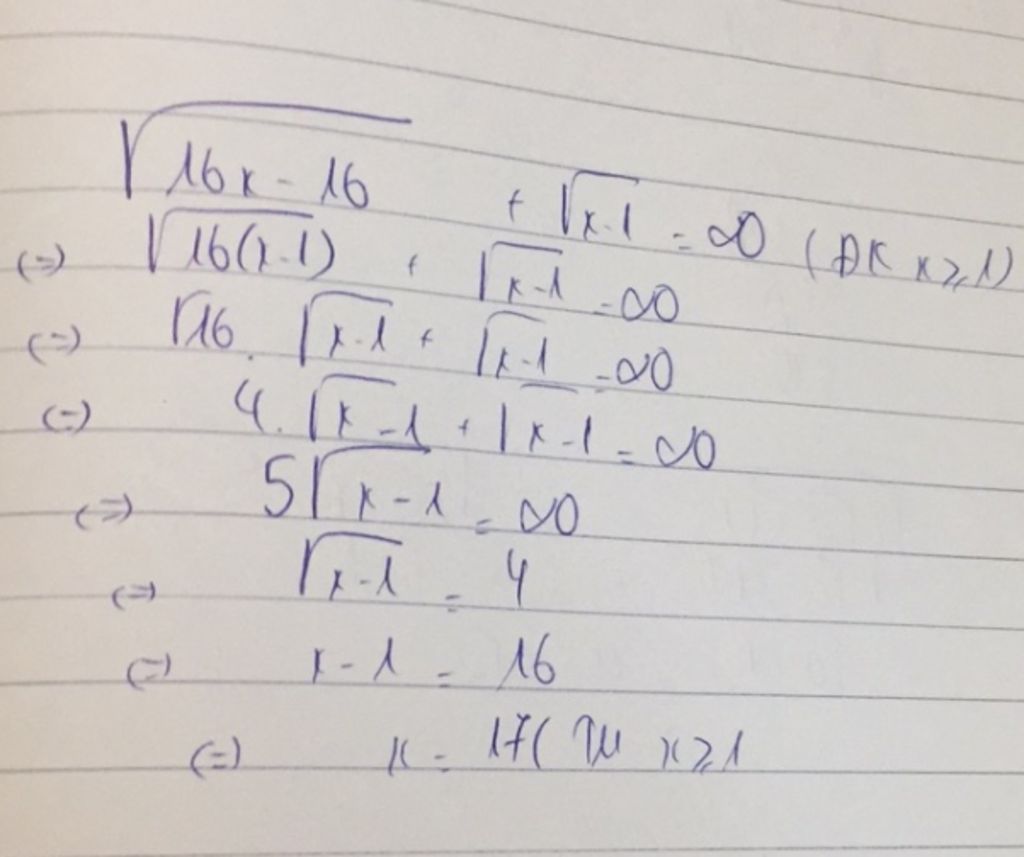 √(16x - 16) + √(x-1) = 20 (ĐK x ≥ 1)
(=) √(16(x-1)) + √(x-1) = 20
(=) √16 . √(x-1) + √(x-1) = 20
(=) 4. √(x-1) + √(x-1) = 20
(=) 5√(x-1) = 20
(=) √(x-1) = 4
(=) x - 1 = 16
(=) x = 17( TM x ≥ 1